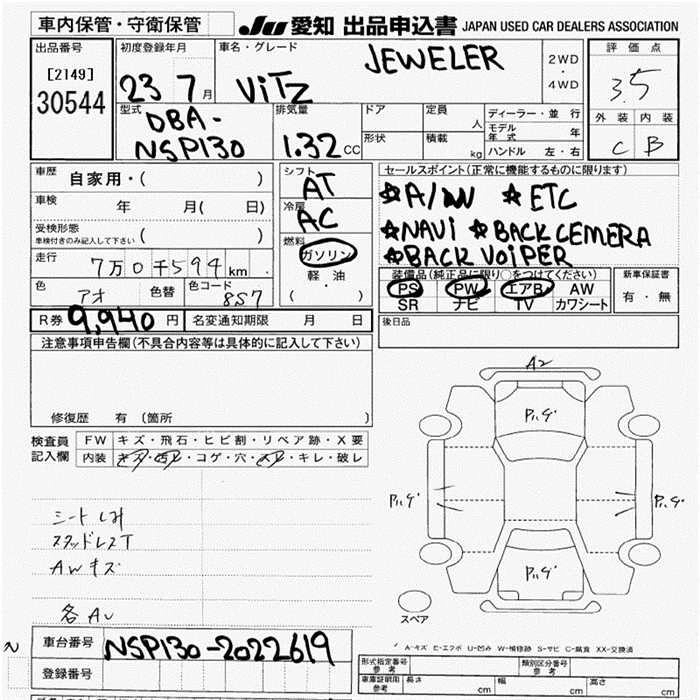 車内保管・守衛保管
JU 愛知 出品申込書 JAPAN USED CAR DEALERS ASSOCIATION
出品番号
[2149]
30544
初度登録年月
23 7月
車名・グレード
ViTZ
JEWELER
2WD
・
4WD
評価点
3.5
外装 内装
C B
型式
DBA-
NSP130
排気量
1.32CC
ドア
定員
人
形状
積載
kg
ディーラー・並行
モデル年式 年
ハンドル 左・右
車歴 自家用・( )
車検 年 月( 日)
受検形態
車検付きのみ記入して下さい ( )
走行 7万0千594km
色 アオ 色替 色コード 8S7
R券 9,940円 名変通知期限 月 日
シフト
AT
冷房
AC
燃料
ガソリン
軽油
( ・ )
セールスポイント(正常に機能するものに限ります)
☆A/W ☆ETC
☆NAVi ☆BACK CEMERA
☆BACK VOiPER
装備品(純正品に限り○をつけてください)
PS PW エアB AW
SR ナビ TV カワシート
新車保証書
有・無
後日品
注意事項申告欄(不具合内容等は具体的に記入して下さい)
修復歴 有(箇所
検査員
記入欄
FW キズ・飛石・ヒビ割・リペア跡・X要
内装 キズ・汚レ・コゲ・穴・スレ・キレ・破レ
シートしみ
スタッドレスT
AWキズ
各AU
A2
スペア
A-キズ E-エクボ U-凹み W-補修跡 S-サビ C-腐食 XX-交換済
車台番号 NSP130-2022619
登録番号
形式指定番号
参考
類別区分番号
参考
車庫証明用
参考
長さ cm 幅 cm 高さ cm